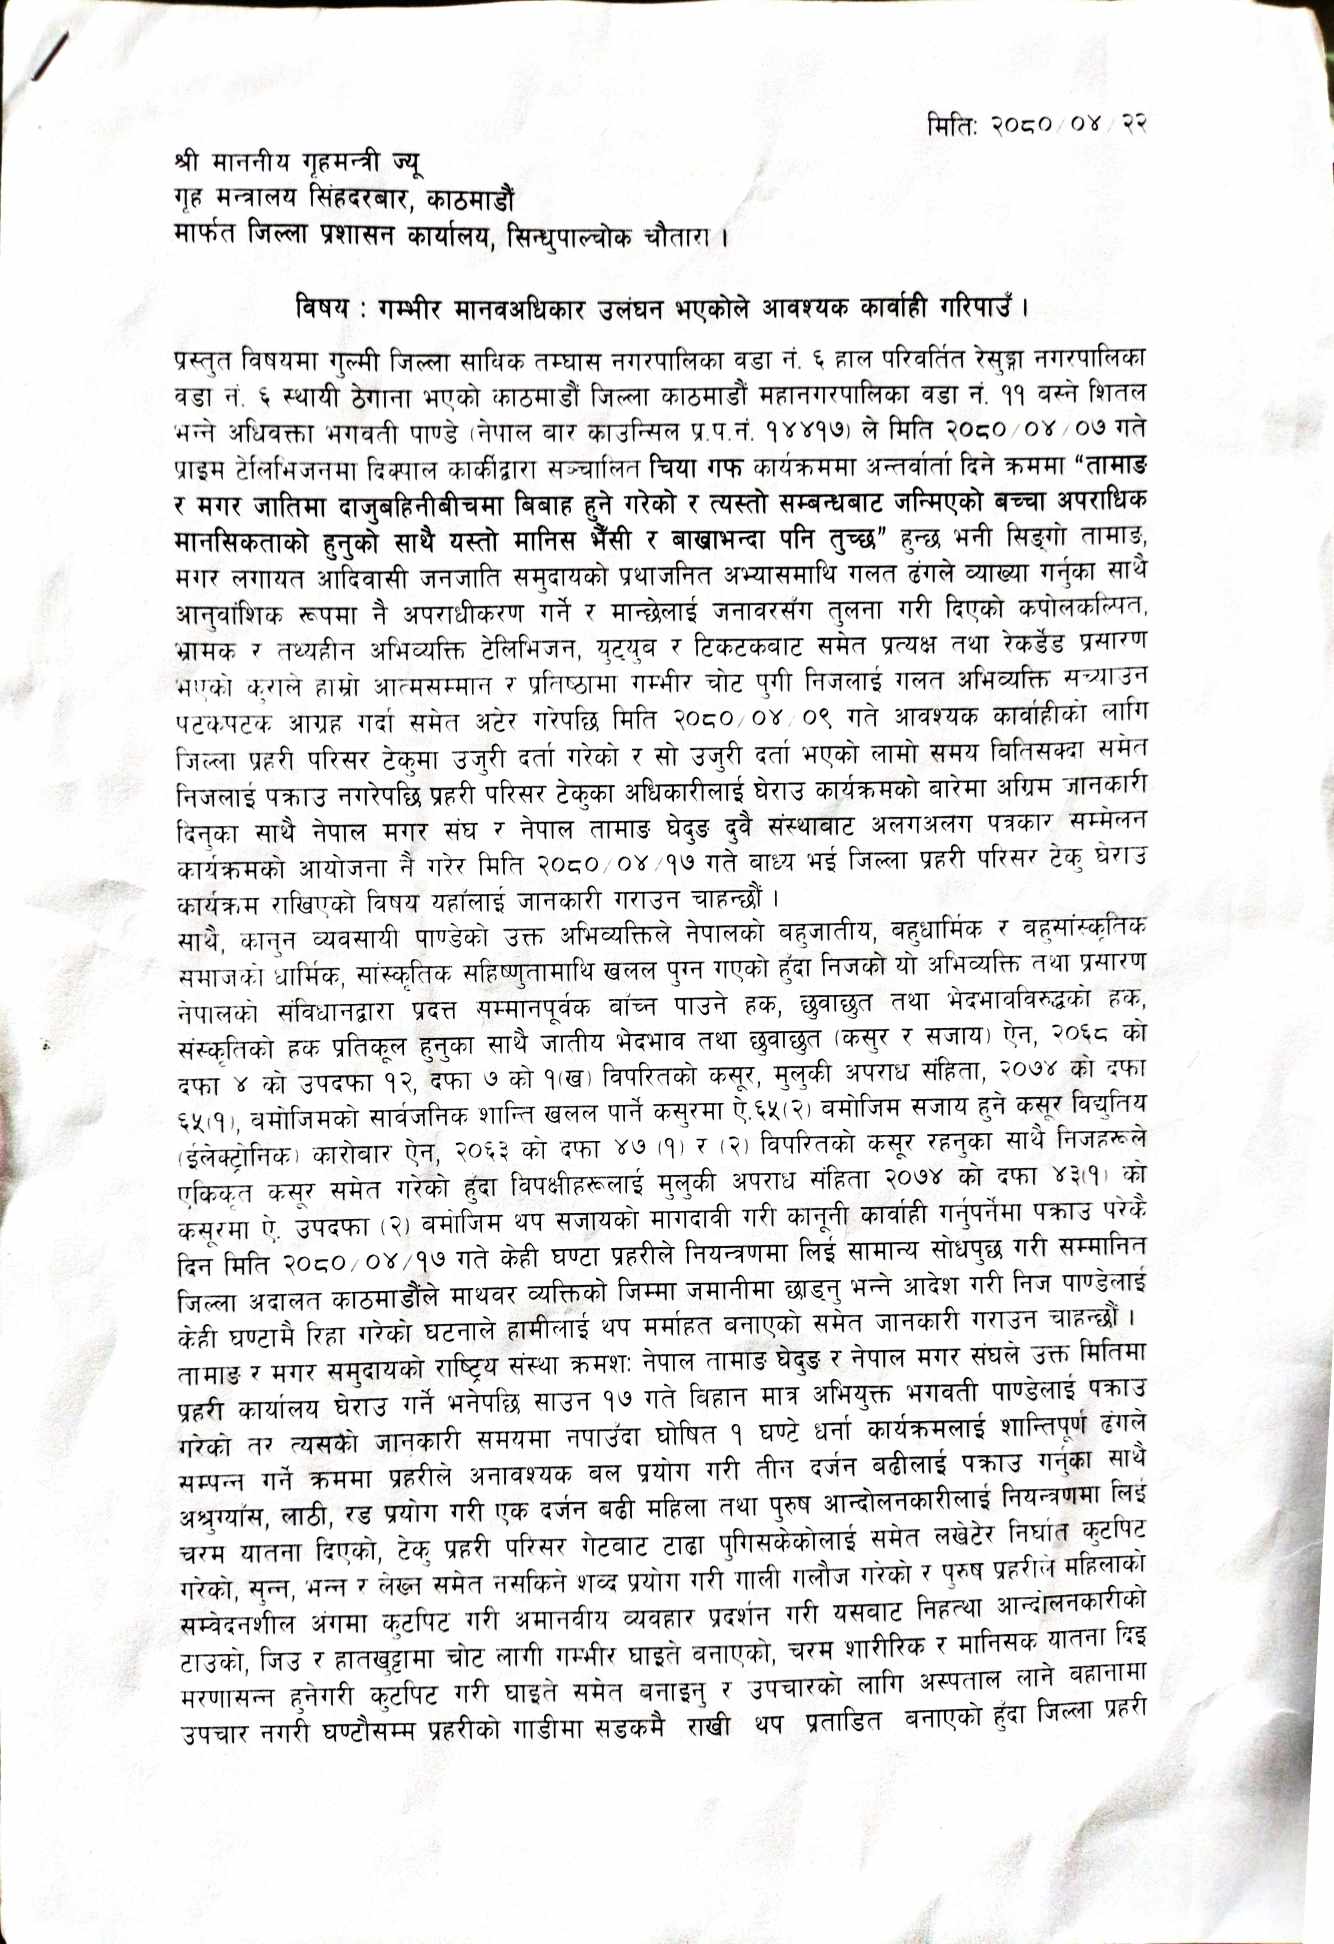 मितिः २०८०/०४/२२
श्री माननीय गृहमन्त्री ज्यू
गृह मन्त्रालय सिंहदरबार, काठमाडौं
मार्फत जिल्ला प्रशासन कार्यालय, सिन्धुपाल्चोक चौतारा ।
विषय : गम्भीर मानवअधिकार उलंघन भएकोले आवश्यक कार्वाही गरिपाउँ ।
प्रस्तुत विषयमा गुल्मी जिल्ला साविक तम्घास नगरपालिका वडा नं. ६ हाल परिवर्तित रेसुङ्गा नगरपालिका
वडा नं. ६ स्थायी ठेगाना भएको काठमाडौं जिल्ला काठमाडौं महानगरपालिका वडा नं. ११ वस्ने शितल
भन्ने अधिवक्ता भगवती पाण्डे (नेपाल वार काउन्सिल प्र.प.नं. १४४१७) ले मिति २०८०/०४/०७ गते
प्राइम टेलिभिजनमा दिक्पाल कार्कीद्वारा सञ्चालित चिया गफ कार्यक्रममा अन्तर्वार्ता दिने क्रममा “तामाङ
र मगर जातिमा दाजुबहिनीबीचमा बिबाह हुने गरेको र त्यस्तो सम्बन्धबाट जन्मिएको बच्चा अपराधिक
मानसिकताको हुनुको साथै यस्तो मानिस भैँसी र बाख्राभन्दा पनि तुच्छ” हुन्छ भनी सिङ्गो तामाङ,
मगर लगायत आदिवासी जनजाति समुदायको प्रथाजनित अभ्यासमाथि गलत ढंगले व्याख्या गर्नुका साथै
आनुवांशिक रूपमा नै अपराधीकरण गर्ने र मान्छेलाई जनावरसँग तुलना गरी दिएको कपोलकल्पित,
भ्रामक र तथ्यहीन अभिव्यक्ति टेलिभिजन, युट्युव र टिकटकवाट समेत प्रत्यक्ष तथा रेकर्डेड प्रसारण
भएको कुराले हाम्रो आत्मसम्मान र प्रतिष्ठामा गम्भीर चोट पुगी निजलाई गलत अभिव्यक्ति सच्याउन
पटकपटक आग्रह गर्दा समेत अटेर गरेपछि मिति २०८०/०४/०९ गते आवश्यक कार्वाहीको लागि
जिल्ला प्रहरी परिसर टेकुमा उजुरी दर्ता गरेको र सो उजुरी दर्ता भएको लामो समय वितिसक्दा समेत
निजलाई पक्राउ नगरेपछि प्रहरी परिसर टेकुका अधिकारीलाई घेराउ कार्यक्रमको बारेमा अग्रिम जानकारी
दिनुका साथै नेपाल मगर संघ र नेपाल तामाङ घेदुङ दुवै संस्थाबाट अलगअलग पत्रकार सम्मेलन
कार्यक्रमको आयोजना नै गरेर मिति २०८०/०४/१७ गते वाध्य भई जिल्ला प्रहरी परिसर टेकु घेराउ
कार्यक्रम राखिएको विषय यहाँलाई जानकारी गराउन चाहन्छौं ।
साथै, कानुन व्यवसायी पाण्डेको उक्त अभिव्यक्तिले नेपालको बहुजातीय, बहुधार्मिक र बहुसांस्कृतिक
समाजको धार्मिक, सांस्कृतिक सहिष्णुतामाथि खलल पुग्न गएको हुँदा निजको यो अभिव्यक्ति तथा प्रसारण
नेपालको संविधानद्वारा प्रदत्त सम्मानपूर्वक वाँच्न पाउने हक, छुवाछुत तथा भेदभावविरुद्धको हक,
संस्कृतिको हक प्रतिकूल हुनुका साथै जातीय भेदभाव तथा छुवाछुत (कसुर र सजाय) ऐन, २०६८ को
दफा ४ को उपदफा १२, दफा ७ को १(ख) विपरितको कसूर, मुलुकी अपराध संहिता, २०७४ को दफा
६५(१), वमोजिमको सार्वजनिक शान्ति खलल पार्ने कसुरमा ऐ.६५(२) वमोजिम सजाय हुने कसूर विद्युतिय
(ईलेक्ट्रोनिक) कारोवार ऐन, २०६३ को दफा ४७ (१) र (२) विपरितको कसूर रहनुका साथै निजहरूले
एकिकृत कसूर समेत गरेको हुँदा विपक्षीहरूलाई मुलुकी अपराध संहिता २०७४ को दफा ४३(१) को
कसूरमा ऐ. उपदफा (२) बमोजिम थप सजायको मागदावी गरी कानूनी कार्वाही गर्नुपर्नेमा पक्राउ परेकै
दिन मिति २०८०/०४/१७ गते केही घण्टा प्रहरीले नियन्त्रणमा लिई सामान्य सोधपुछ गरी सम्मानित
जिल्ला अदालत काठमाडौंले माथवर व्यक्तिको जिम्मा जमानीमा छाड्नु भन्ने आदेश गरी निज पाण्डेलाई
केही घण्टामै रिहा गरेको घटनाले हामीलाई थप मर्माहत बनाएको समेत जानकारी गराउन चाहन्छौं ।
तामाङ र मगर समुदायको राष्ट्रिय संस्था क्रमशः नेपाल तामाङ घेदुङ र नेपाल मगर संघले उक्त मितिमा
प्रहरी कार्यालय घेराउ गर्ने भनेपछि साउन १७ गते विहान मात्र अभियुक्त भगवती पाण्डेलाई पक्राउ
गरेको तर त्यसको जानकारी समयमा नपाउँदा घोषित १ घण्टे धर्ना कार्यक्रमलाई शान्तिपूर्ण ढंगले
सम्पन्न गर्ने क्रममा प्रहरीले अनावश्यक वल प्रयोग गरी तीन दर्जन बढीलाई पक्राउ गर्नुका साथै
अश्रुग्याँस, लाठी, रड प्रयोग गरी एक दर्जन बढी महिला तथा पुरुष आन्दोलनकारीलाई नियन्त्रणमा लिई
चरम यातना दिएको, टेकु प्रहरी परिसर गेटवाट टाढा पुगिसकेकोलाई समेत लखेटेर निर्घात कुटपिट
गरेको, सुन्न, भन्न र लेख्न समेत नसकिने शव्द प्रयोग गरी गाली गलौज गरेको र पुरुष प्रहरीले महिलाको
सम्वेदनशील अंगमा कुटपिट गरी अमानवीय व्यवहार प्रदर्शन गरी यसवाट निहत्था आन्दोलनकारीको
टाउको, जिउ र हातखुट्टामा चोट लागी गम्भीर घाइते वनाएको, चरम शारीरिक र मानिसक यातना दिइ
मरणासन्न हुनेगरी कुटपिट गरी घाइते समेत बनाइनु र उपचारको लागि अस्पताल लाने वहानामा
उपचार नगरी घण्टौसम्म प्रहरीको गाडीमा सडकमै राखी थप प्रताडित बनाएको हुँदा जिल्ला प्रहरी